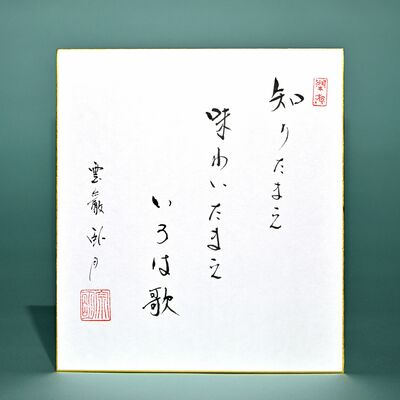 知りたまえ
味わいたまえ
いろは歌
雲巌